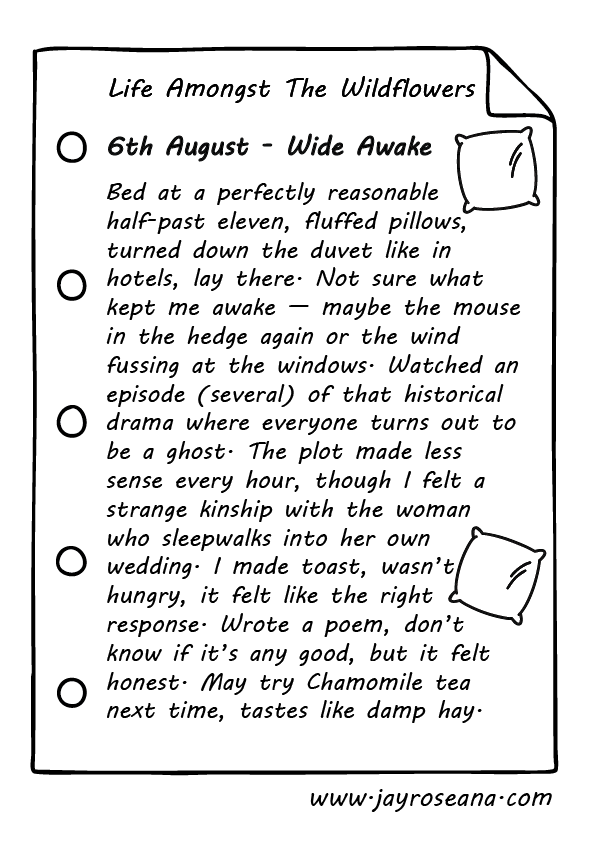 Life Amongst The Wildflowers
6th August - Wide Awake
Bed at a perfectly reasonable
half-past eleven, fluffed pillows,
turned down the duvet like in
hotels, lay there. Not sure what
kept me awake — maybe the mouse
in the hedge again or the wind
fussing at the windows. Watched an
episode (several) of that historical
drama where everyone turns out to
be a ghost. The plot made less
sense every hour, though I felt a
strange kinship with the woman
who sleepwalks into her own
wedding. I made toast, wasn't
hungry, it felt like the right
response. Wrote a poem, don't
know if it's any good, but it felt
honest. May try Chamomile tea
next time, tastes like damp hay.
www.jayroseana.com